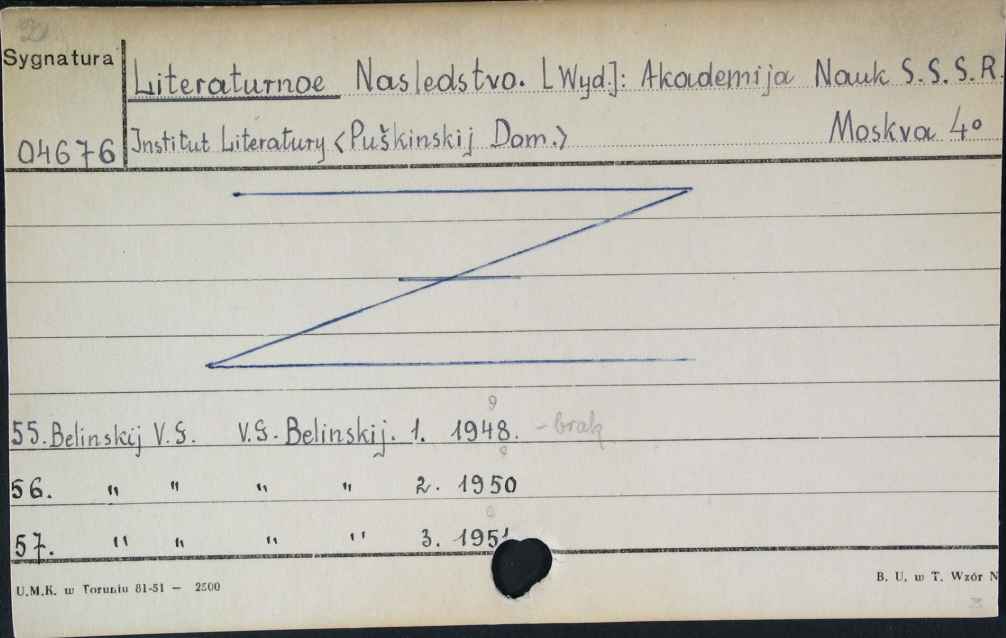 Sygnatura
Literaturnoe Nasledstvo. [Wyd]: Akademija Nauk S.S.S.R.
04676 Institut Literatury <Puškinskij Dom.> Moskva 4°
55. Belinskij V.G. V.G. Belinskij. 1. 1948. - brak
56. " " " " 2. 1950
57. " " " " 3. 1951
U.M.K. w Toruniu 81-51 — 2500
B. U. w T. Wzór N